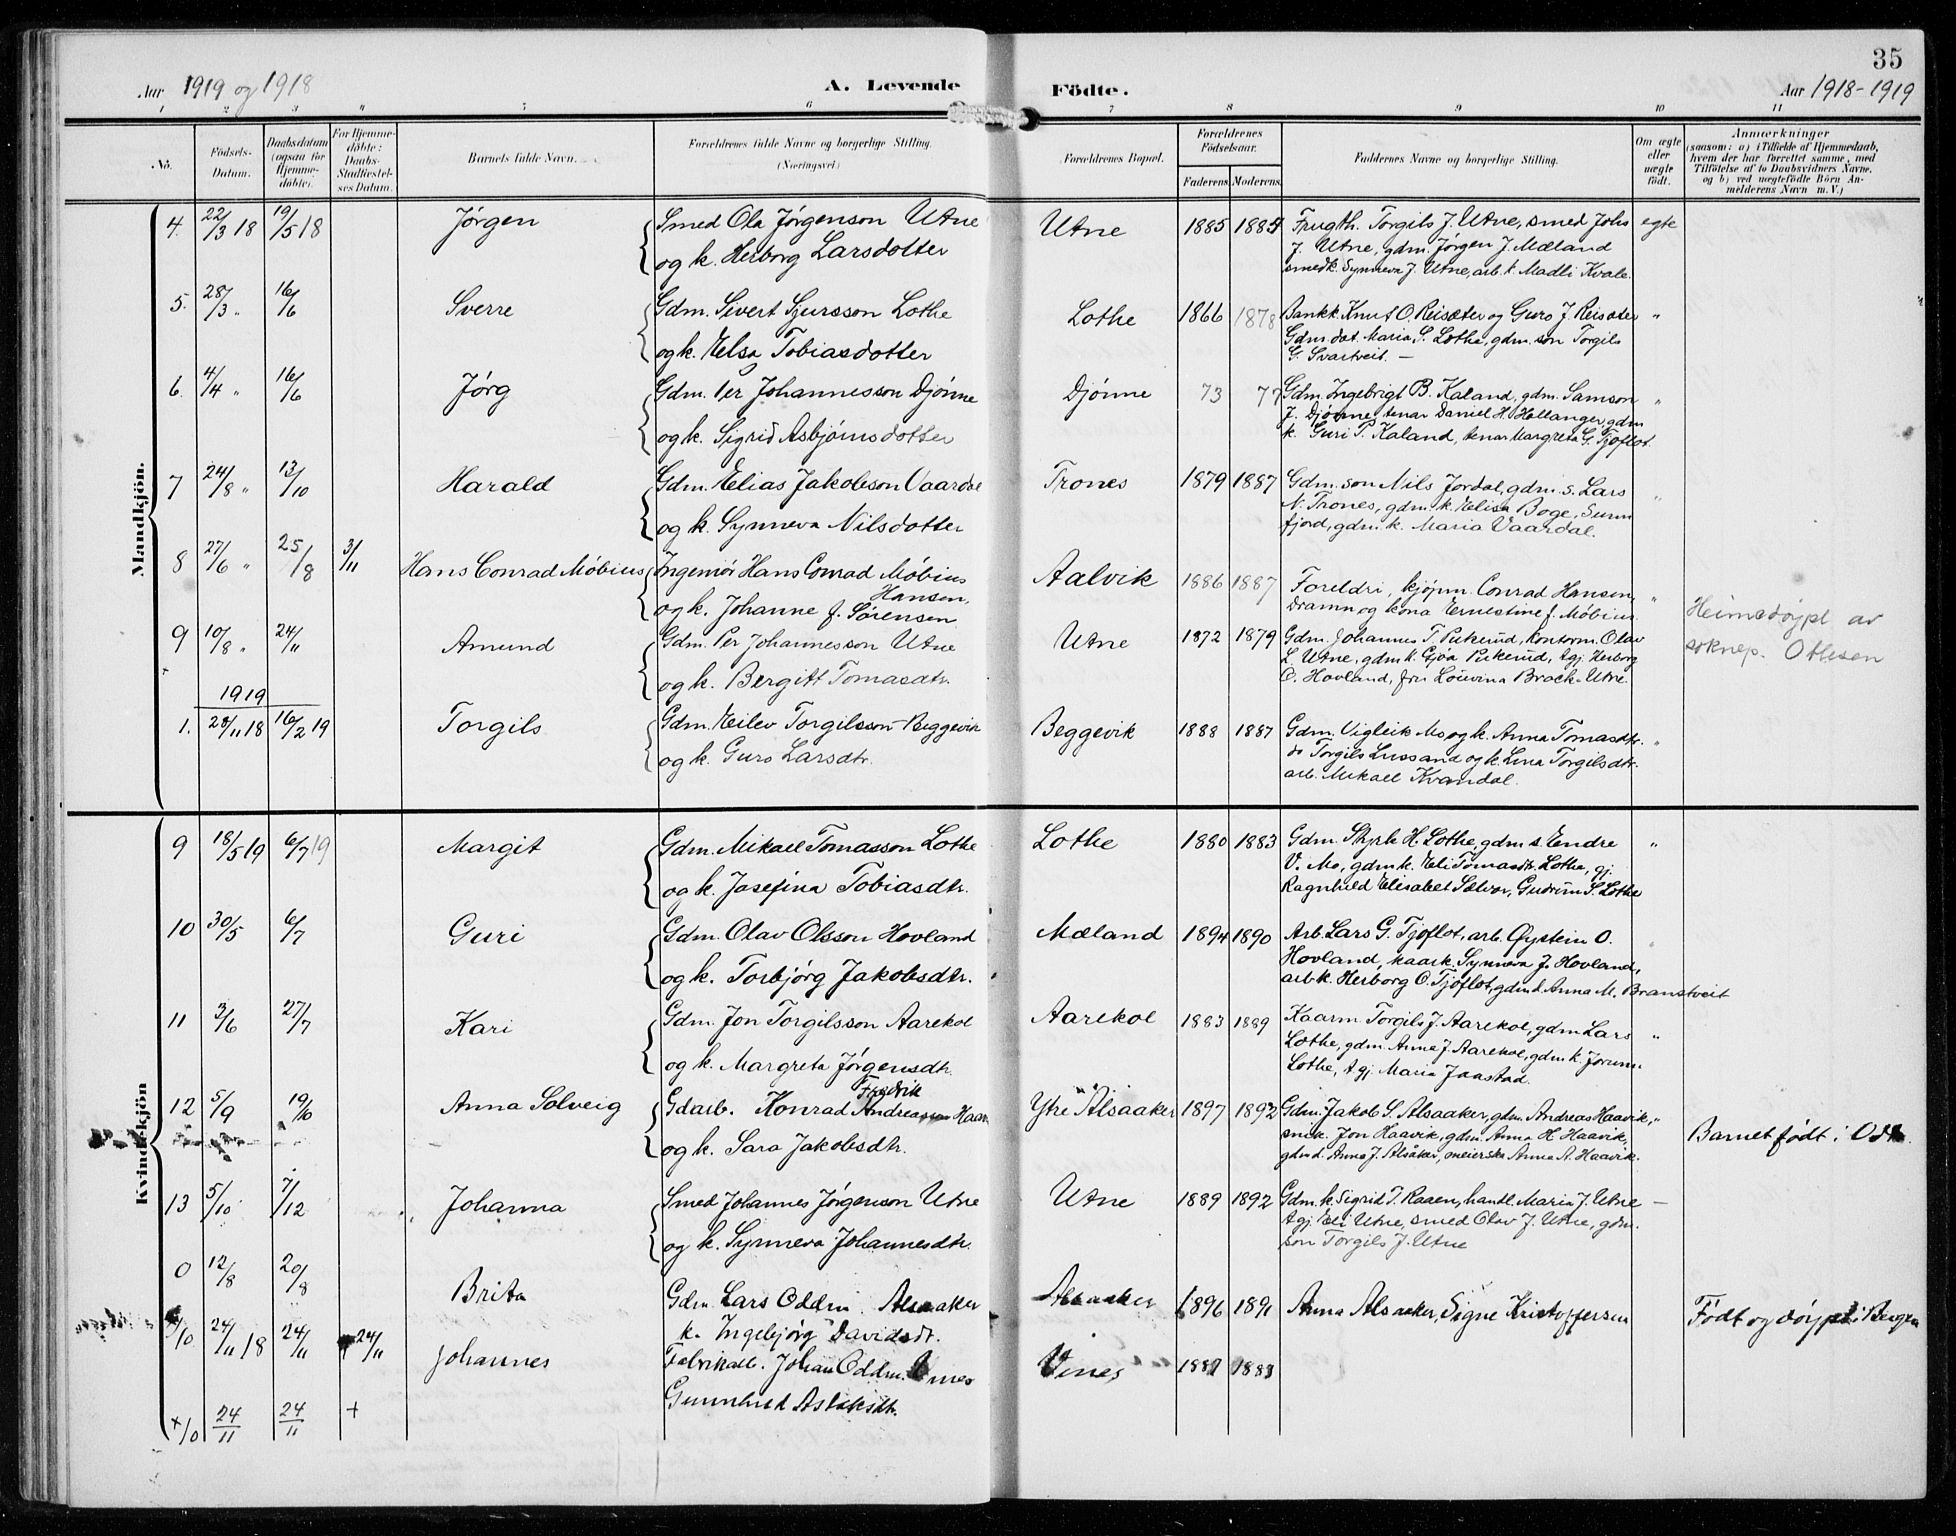 35
Aar 1919 og 1918
A. Levende Födte.
Aar 1918-1919
1 2 3 " 5 6 7 8 9 10 11
No.
Födsels-Datum.
Daabsdatum (ogsaa for Hjemmedöbte).
For Hjemmedöbte: Daabs-Stadfæstelses Datum.
Barnets fulde Navn.
Forældrenes fulde Navne og borgerlige Stilling. (Næringsvei)
Forældrenes Bopæl.
Forældrenes Födselsaar.
Faderens. Moderens.
Faddernes Navne og borgerlige Stilling.
Om ægte eller uægte födt.
Anmærkninger
(saasom: a) i Tilfælde af Hjemmedaab, hvem der har forrettet samme, med Tilföielse af to Daabsvidners Navne, og b) ved uægtefödte Börn Anmelderens Navn m. V.)
Mandkjön.
4. 22/3 18 19/5 18 Jørgen Smed Ola Jørgenson Utne Utne 1885 1885 Frugth. Torgils J. Utne, smed Johs egte
og k. Herborg Larsdotter J. Utne, gdm. Jørgen J. Mæland
smedk. Synneva J. Utne, arb. k. Madli Kvale.
5. 28/3 " 16/6 Sverre Gdm. Sivert Sjursson Lothe Lothe 1866 1878 Bankk. Knut O. Reisæter og Guro J. Reisæter "
og k. Elsa Tobiasdotter Gdm. dat. Maria S. Lothe, gdm. son Torgils
G. Svartveit. —
6. 4/4 " 16/6 Jørg Gdm. Per Johannesson Djønne Djønne 73 77 Gdm. Ingebrigt B. Kaland, gdm. Samson "
og k. Sigrid Asbjørnsdotter J. Djønne, tenar Daniel H. Hollanger, gdm
k. Guri P. Kaland, tenar Margreta G. Tjoflot.
7 24/8 " 13/10 Harald Gdm. Elias Jakobson Vaardal Trones 1879 1887 Gdm. son Nils Jordal, gdm. s. Lars "
og k. Synneva Nilsdotter N. Trones, gdm. k. Elisa Boge, Sunn
fjord, gdm. k. Maria Vaardal.
8 27/6 " 25/8 3/11 Hans Conrad Möbius Ingeniør Hans Conrad Möbius Hansen Aalvik 1886 1887 Foreldri, kjøpm. Conrad Hansen, "
og k. Johanne f. Sørensen Dramn og kona Ernestine f. Möbius. Heimedøypt av
soknep. Ottesen
9 10/8 " 24/11 Amund Gdm. Per Johannesson Utne Utne 1872 1879 Gdm. Johannes T. Pukerud, kontorm. Olav
og k. Bergitt Tomasdtr. L. Utne, gdm. k. Gjøa Pukerud, tgj. Herborg
O. Hovland, fru Lovina Brock-Utne.
1919
1. 28/11 18 16/2 19 Torgils Gdm. Eilev Torgilsson Beggevik Beggevik 1888 1887 Gdm. Vigleik Mo og k. Anna Tomasdtr. "
og k. Guro Larsdtr. do Torgils Lussand og k. Lina Torgilsdtr.
arb. Mikael Kvandal.
Kvindekjön
9 18/5 19 6/7 19 Margit Gdm. Mikael Tomasson Lothe Lothe 1880 1883 Gdm. Styrk H. Lothe, gdm. s. Endre "
og k. Josefina Tobiasdtr. V. Mo, gdm. k. Eli Tomasdtr. Lothe, gj.
Ragnhild Elisabet Sælvor, Gudrun S. Lothe
10 30/5 6/7 Guri Gdm. Olav Olsson Hovland Mæland 1894 1890 Arb. Lars G. Tjoflot, arb. Øystein O. "
og k. Torbjørg Jakobsdtr. Hovland, kaark. Synneva J. Hovland,
arb. k. Herborg O. Tjoflot, gdm. d. Anna M. Branstveit
11 3/6 27/7 Kari Gdm. Jon Torgilsson Aarekol Aarekol 1883 1889 Kaarm. Torgils J. Aarekol, gdm Lars "
og k. Margreta Jørgensdtr. Lothe, gdm. Anna J. Aarekol, gdm. k. Jorunn
Lothe, tgj Maria Jaastad.
12 5/9 19/10 Anna Solveig Gdarb. Konrad Fredrik Andreassen Haavik Ytre Alsaaker 1897 1892 Gdm. Jakob S. Alsaaker, gdm. Andreas Haavik, "
og k. Sara Jakobsdtr. snik. Jon Haavik, gdm. Anna H Haavik, Barnet født i Odda.
gdm d. Anna J. Alsåker, meierske Anna A. Haavik.
13 5/10 7/12 Johanna Smed Johannes Jørgenson Utne Utne 1889 1892 Gdm. k. Sigrid T. Raaen, handl. Maria J. Utne —
og k. Synneva Johannesdtr. tgj Eli Utne, smed Olav J. Utne, gdm.
son Torgils J. Utne
0 12/8 20/8 Brita Gdm. Lars Oddm. Alsaaker Alsaaker 1896 1891 Anna Alsaaker, Signe Kristoffersen Födt og døypt i Bergen
k. Ingebjørg Davidsdt.
/0 24/11 18 24/11 24/11 Johannes Fabrikarb. Johan Oddm. Vines Vines 1883
+/0 24/11 24/11 + Gunnhild Aslaksdtr.